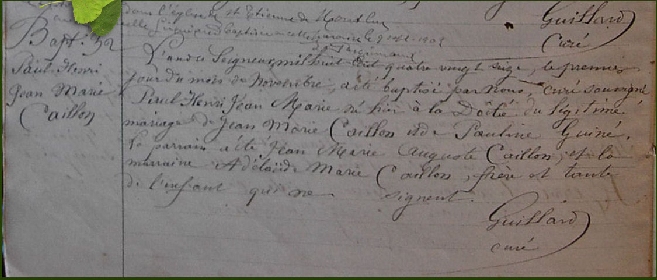 dans l'église St Etienne de Montluc
Guillard
curé
Bapt. 92
Paul Henri
Jean Marie
Caillon
L'an du Seigneur mil huit cent quatre vingt seize, le premier
jour du mois de Novembre, a été baptisé par nous, curé soussigné
Paul Henri Jean Marie né hier à la Dôlée du légitime
mariage de Jean Marie Caillon et de Pauline Guiné.
Le parrain a été Jean Marie Auguste Caillon, et la
marraine Adélaïde Marie Caillon, frère et tante
de l'enfant qui ne signent.
Guillard
curé